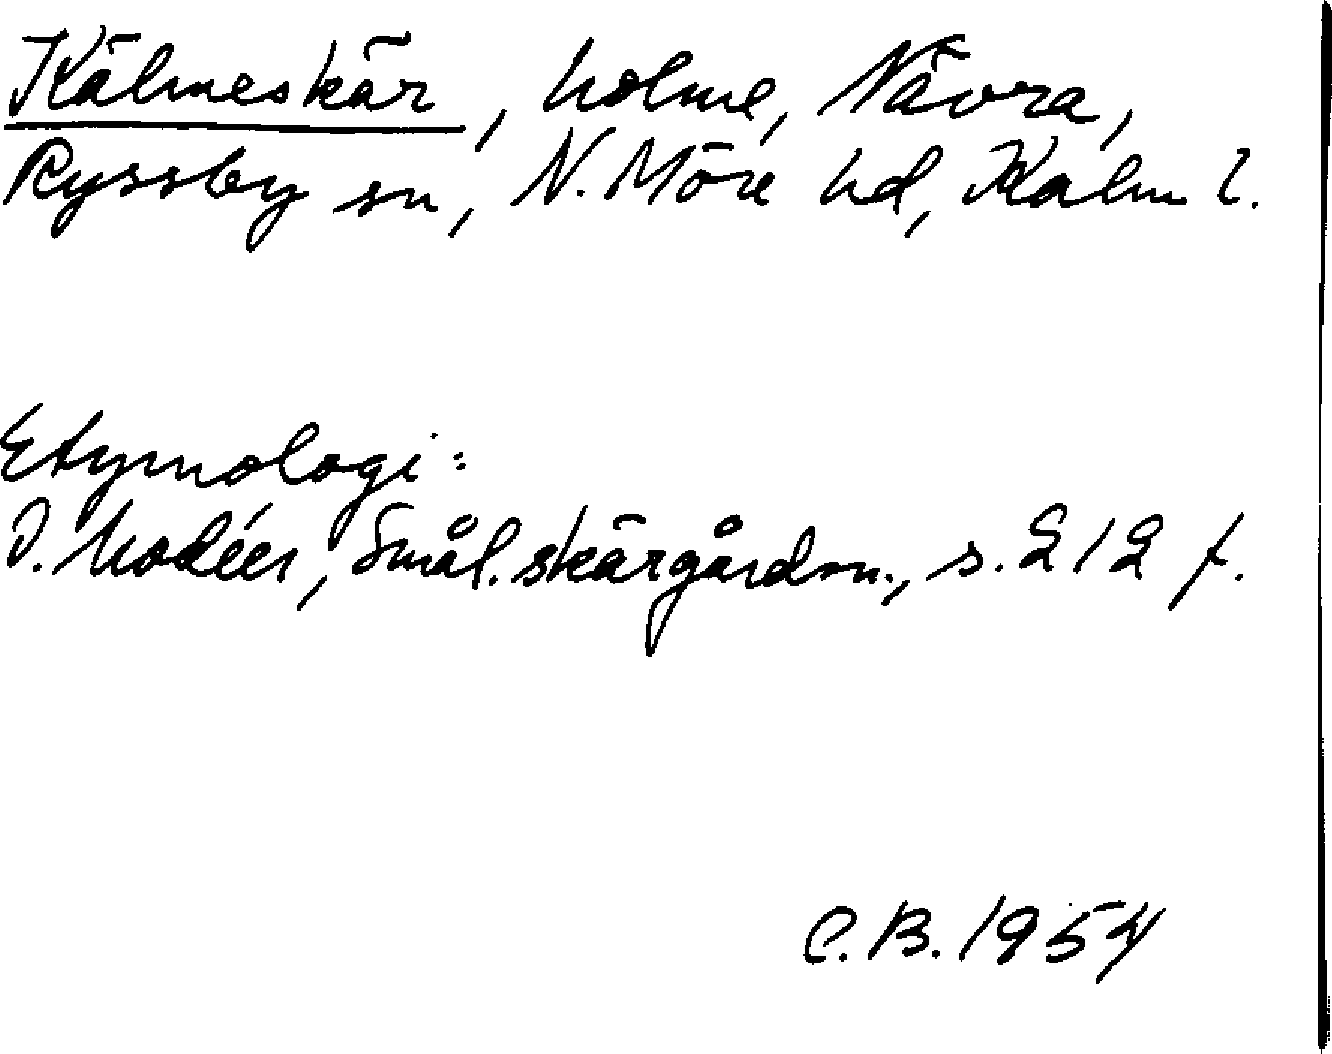 Kälmeskär, holme, Nävra,
Ryssby sn, N. Möre hd, Kalm l.
Etymologi:
I. Modéer, Smål. skärgårdsn., s. 212 f.
C. B. 1954